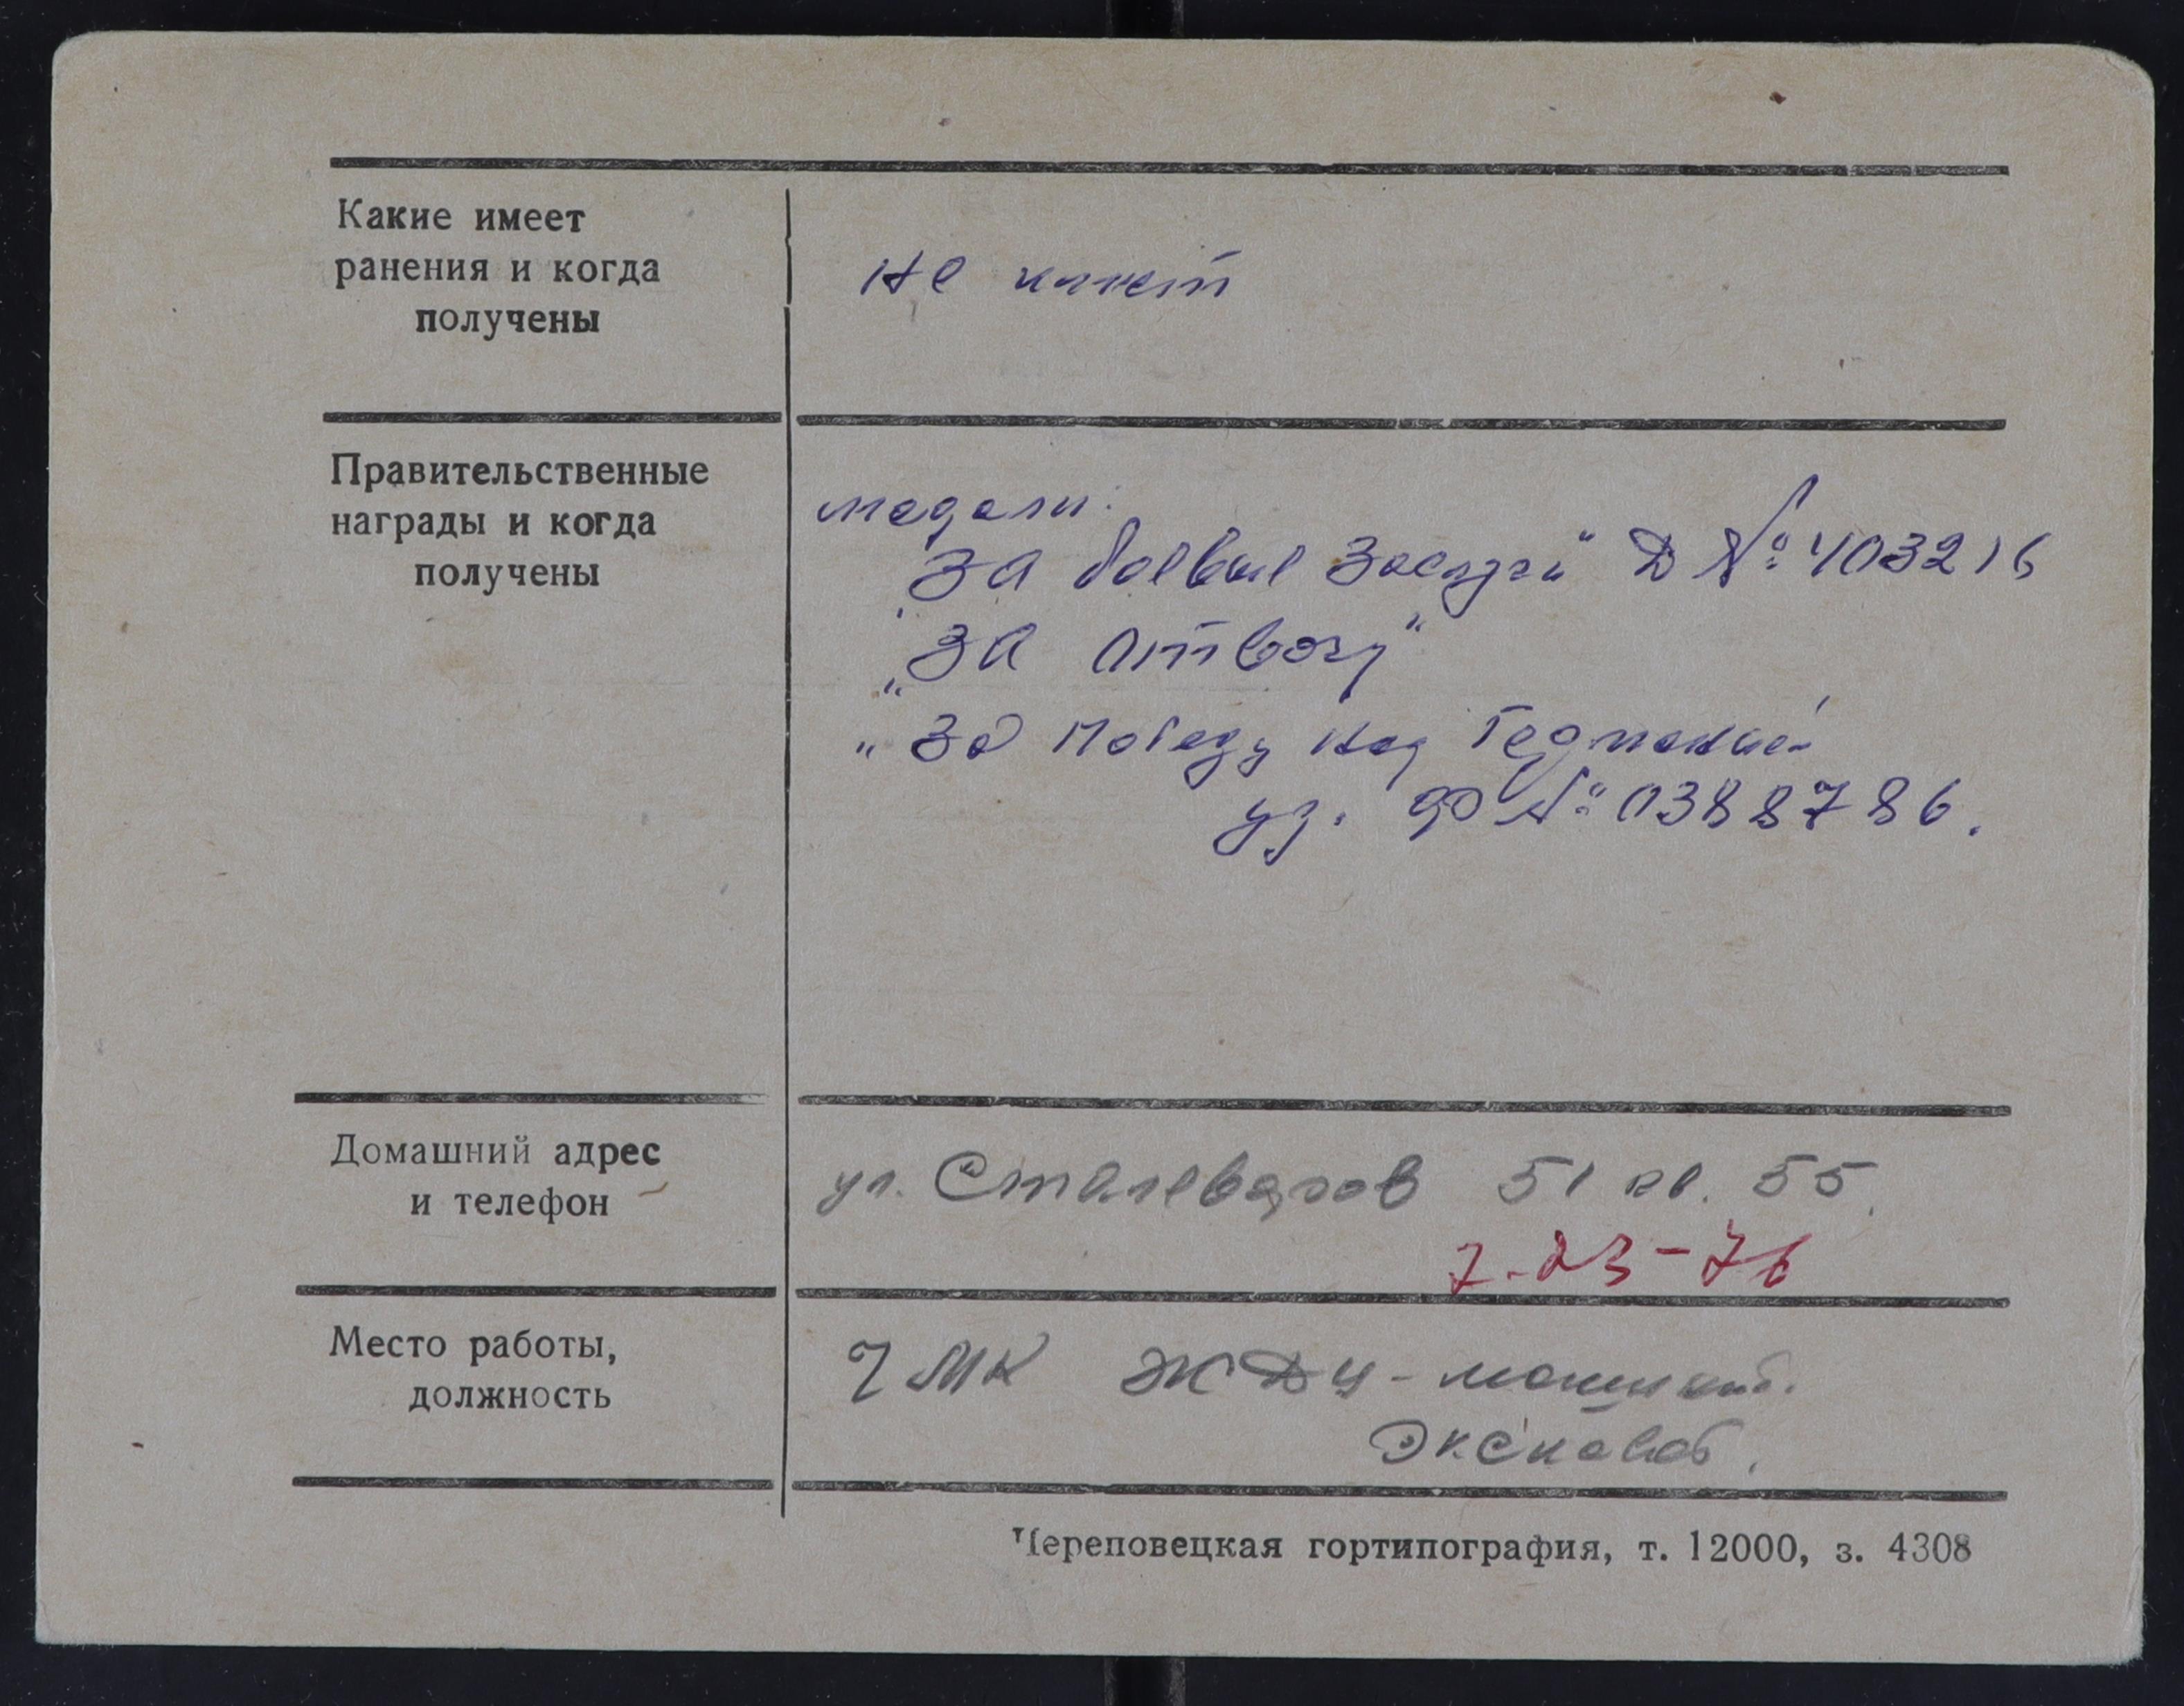 Какие имеет
ранения и когда
получены
не имеет
Правительственные
награды и когда
получены
медали:
"За боевые заслуги" Д № 403216
"За отвагу"
"За победу над Германией
уд. Ф № 0388786.
Домашний адрес
и телефон
ул. Сталеваров 51 кв. 55.
7-23-76
Место работы,
должность
ЧМК ЖДЦ - машинист.
Экскават.
Череповецкая гортипография, т. 12000, з. 4308